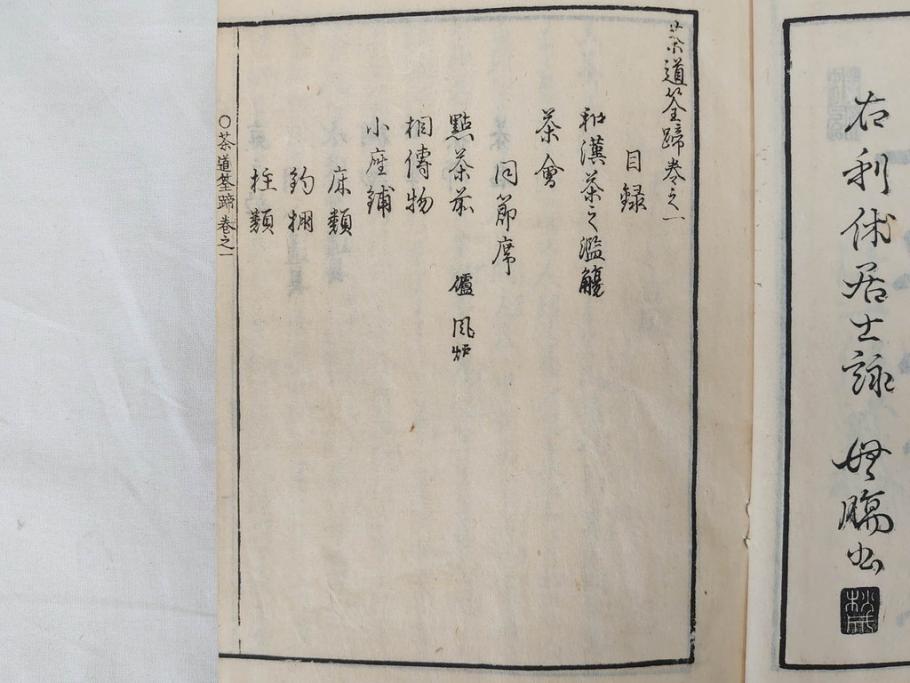 右利休居士詠
茶道筌蹄巻之一
目録
和漢茶之濫觴
茶會
同節席
點茶茶 爐 風炉
相傳物
小座鋪
床類
釣棚
柱類
〇茶道筌蹄巻之一